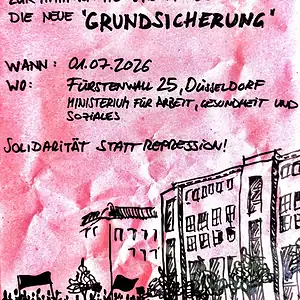 DIE NEUE "GRUNDSICHERUNG"
WANN: 01.07.2026
WO: FÜRSTENWALL 25, DÜSSELDORF
MINISTERIUM FÜR ARBEIT, GESUNDHEIT UND
SOZIALES
SOLIDARITÄT STATT REPRESSION!